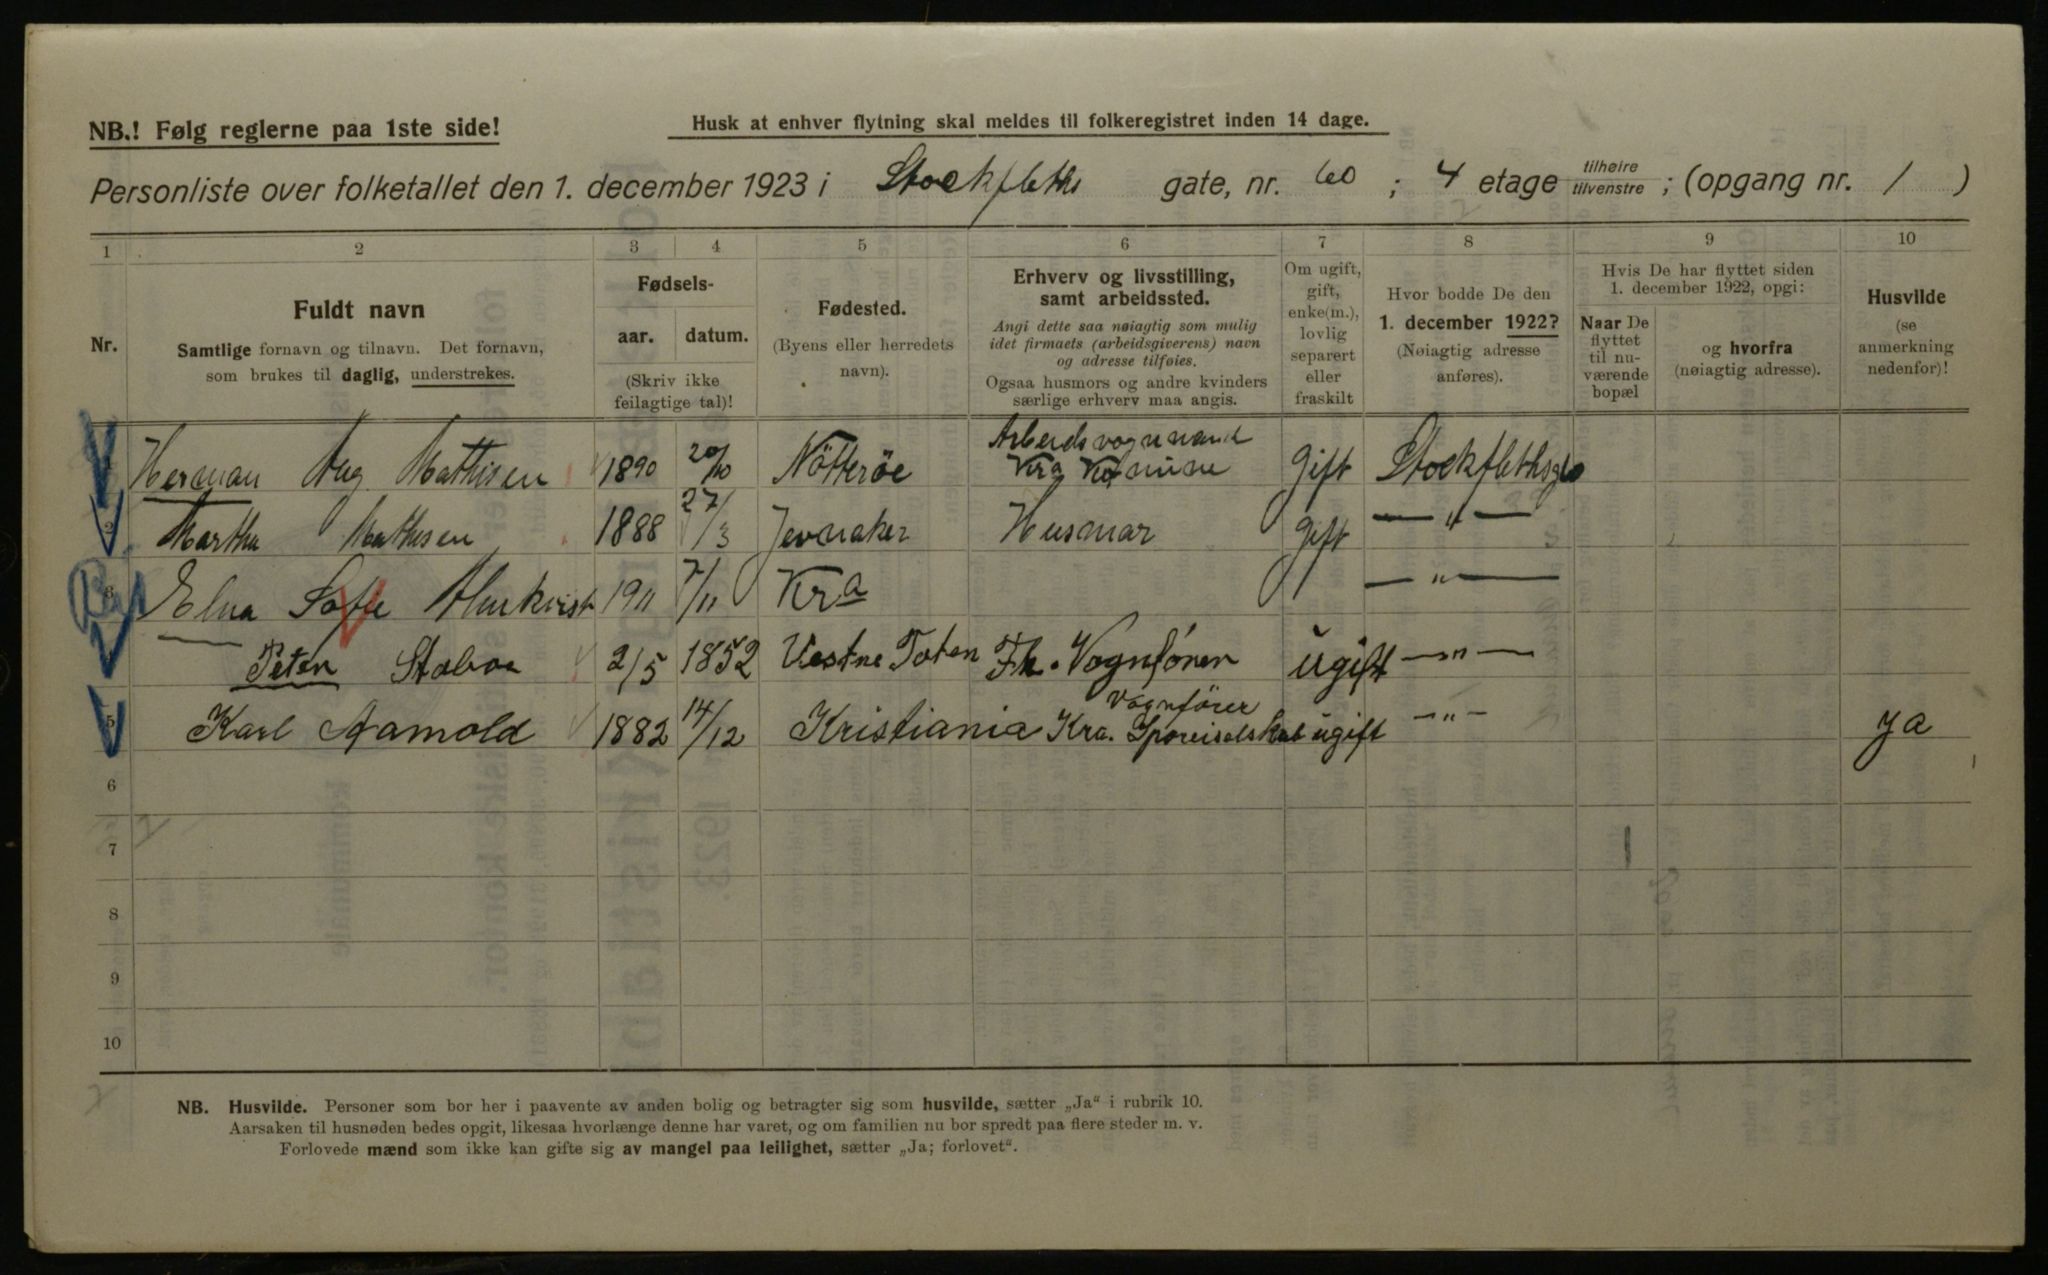 NB.! Følg reglerne paa 1ste side!
Husk at enhver flytning skal meldes til folkeregistret inden 14 dage.
Personliste over folketallet den 1. december 1923 i Stockfleths gate, nr. 60 ; 4 etage tilhøire tilvenstre ; (opgang nr. / )
1 2 3 4 5 6 7 8 9 10
Nr.
Fuldt navn
Samtlige fornavn og tilnavn. Det fornavn,
som brukes til daglig, understrekes.
Fødsels-
aar. datum.
(Skriv ikke
feilagtige tal)!
Fødested.
(Byens eller herredets
navn).
Erhverv og livsstilling,
samt arbeidssted.
Angi dette saa nøiagtig som mulig
idet firmaets (arbeidsgiverens) navn
og adresse tilføies.
Ogsaa husmors og andre kvinders
særlige erhverv maa angis.
Om ugift,
gift,
enke(m.),
lovlig
separert
eller
fraskilt
Hvor bodde De den
1. december 1922?
(Nøiagtig adresse
anføres).
Hvis De har flyttet siden
1. december 1922, opgi:
Naar De
flyttet
til nu-
værende
bopæl
og hvorfra
(nøiagtig adresse).
Husvilde
(se
anmerkning
nedenfor)!
Arbeidsvognmand
Herman Aug Mathisen 1890 20/10 Nötteröe Kra Komune Gift Stockflethsg 60
2 Martha Mathisen 1888 27/3 Jevnaker Husmor Gift — " —
3 Elna Sofie Almkvist 1911 7/11 Kra — " —
Peter Staboe 2/5 1852 Vestne Toten Fh. Vognfören ugift — " —
Vognförer
5 Karl Aamold 1882 14/12 Kristiania Kra. Sporveiselskab ugift - " - ja
6
7
8
9
10
NB. Husvilde. Personer som bor her i paavente av anden bolig og betragter sig som husvilde, sætter „Ja“ i rubrik 10.
Aarsaken til husnøden bedes opgit, likesaa hvorlænge denne har varet, og om familien nu bor spredt paa flere steder m. v.
Forlovede mænd som ikke kan gifte sig av mangel paa leilighet, sætter „Ja; forlovet“.